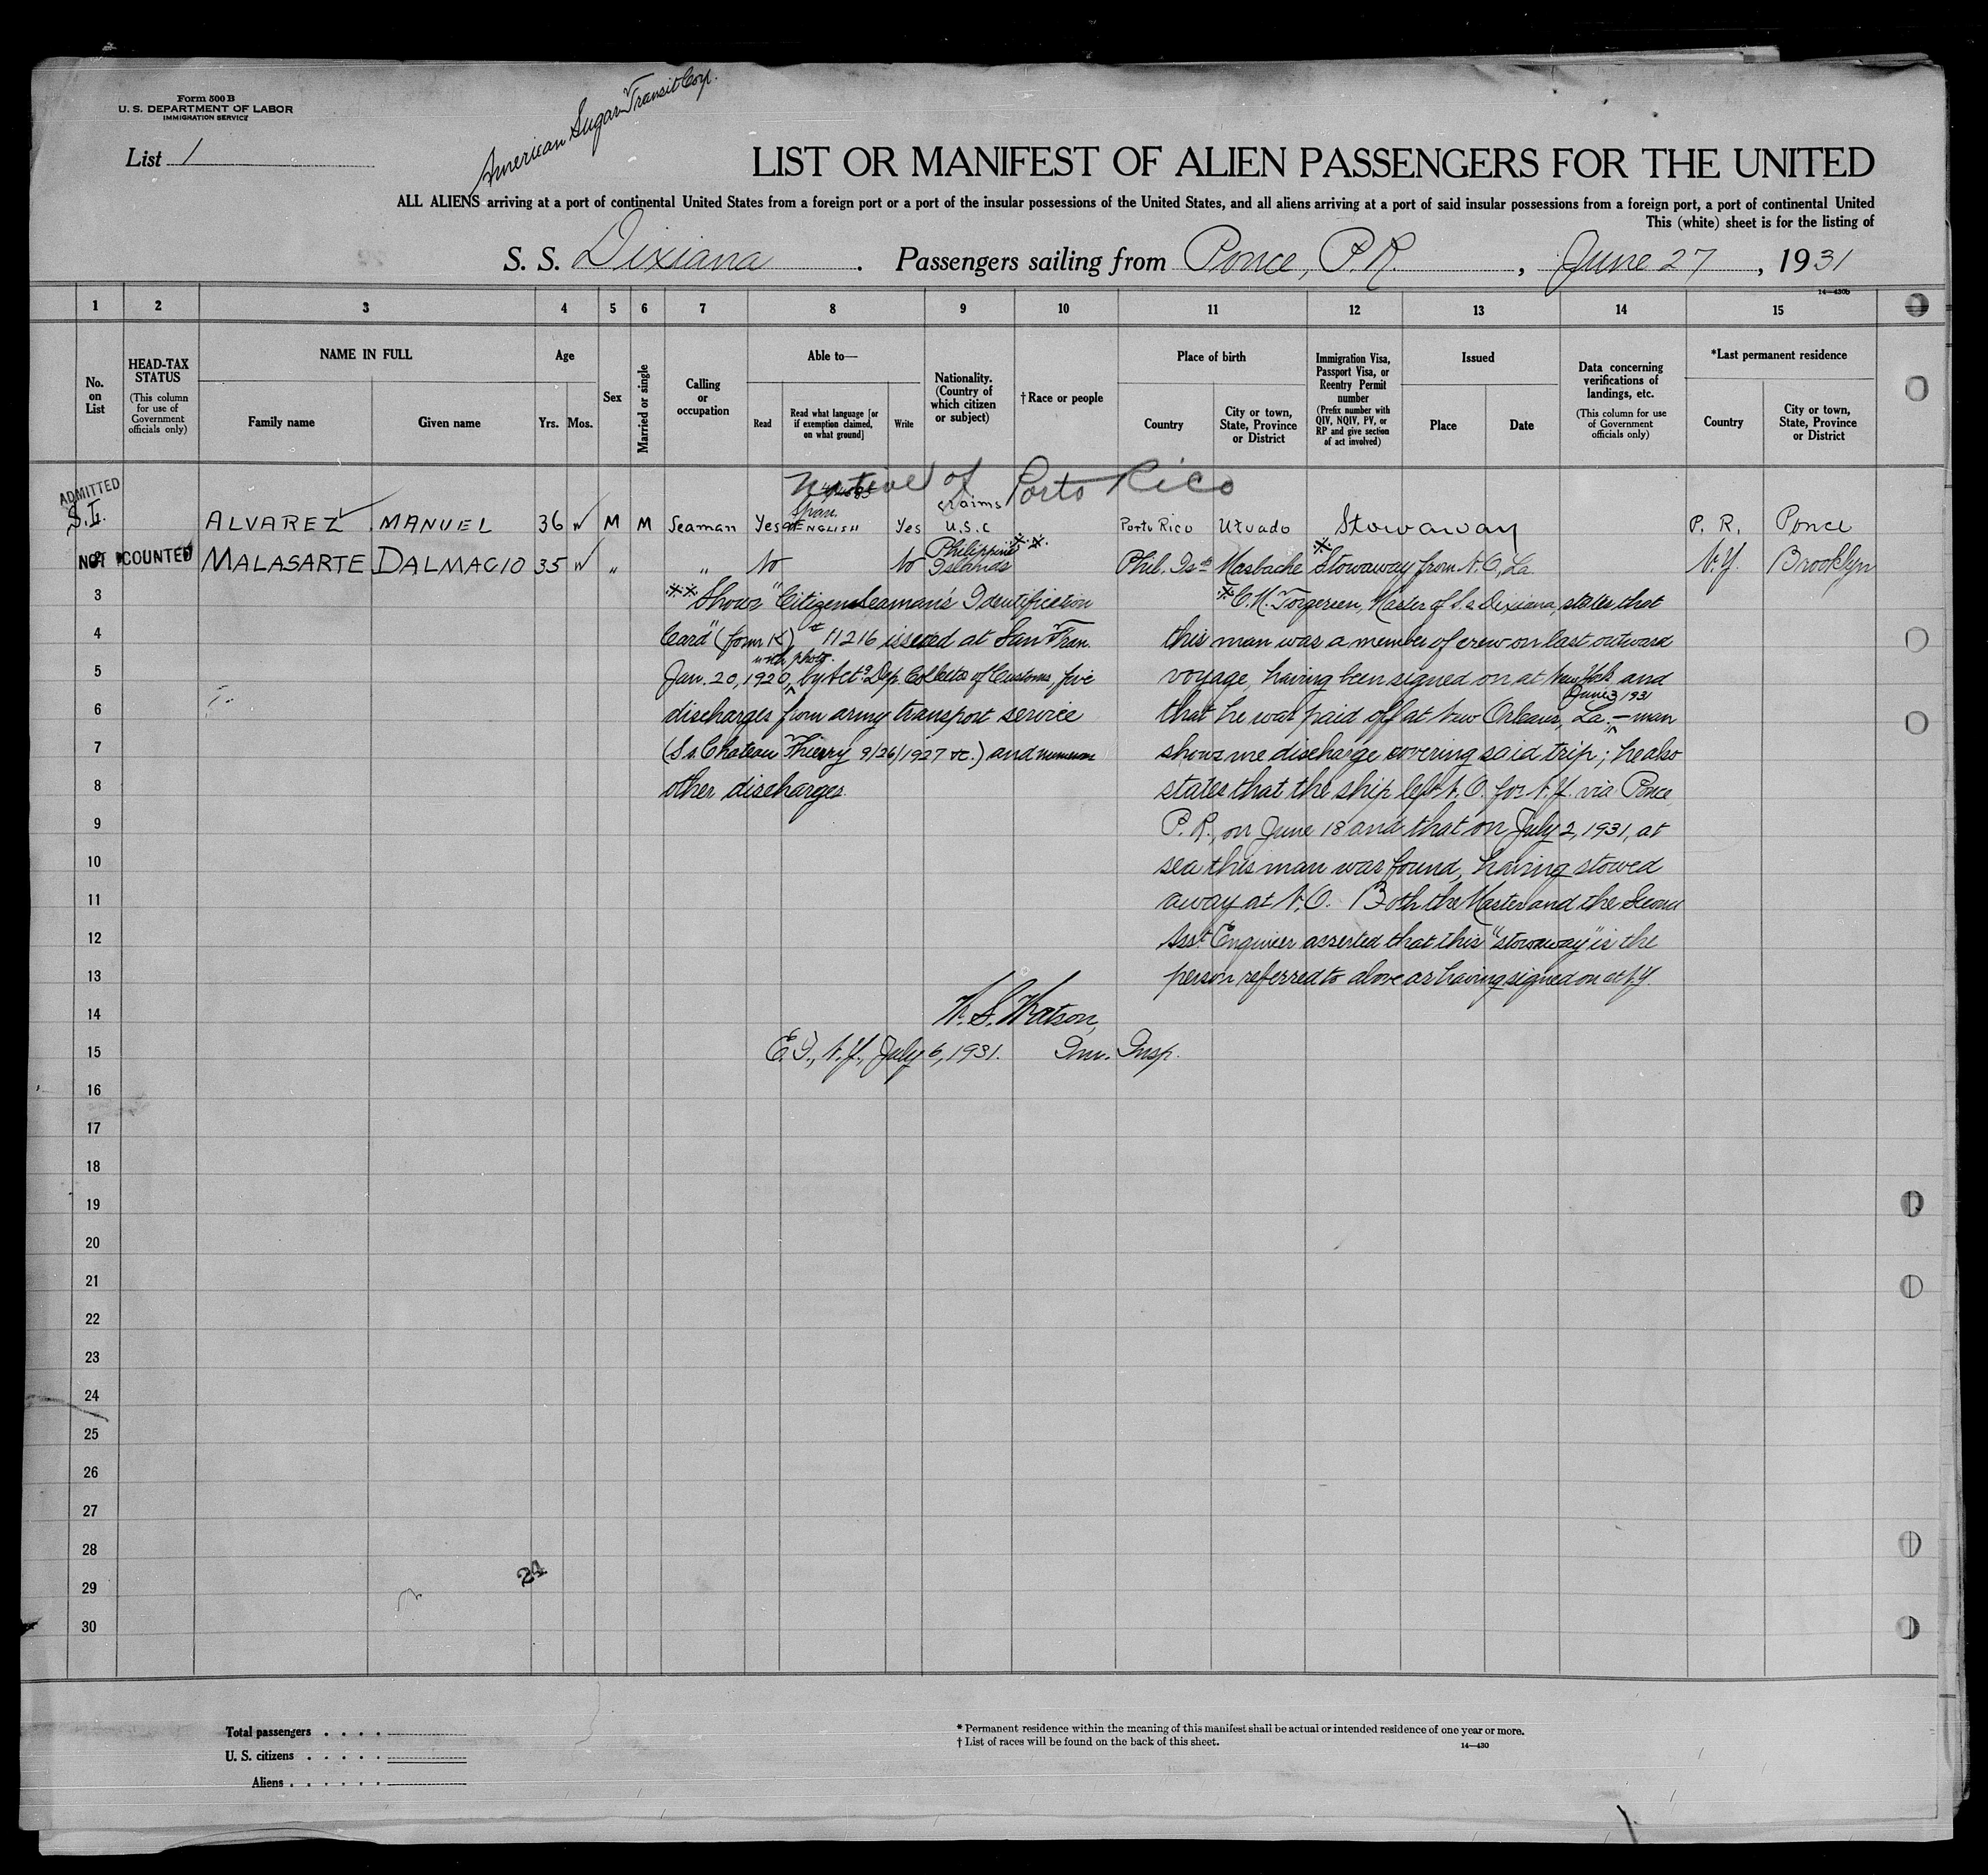 Form 500 B
U. S. DEPARTMENT OF LABOR
IMMIGRATION SERVICE
List 1
American Sugar Transit Corp.
LIST OR MANIFEST OF ALIEN PASSENGERS FOR THE UNITED
ALL ALIENS arriving at a port of continental United States from a foreign port or a port of the insular possessions of the United States, and all aliens arriving at a port of said insular possessions from a foreign port, a port of continental United
This (white) sheet is for the listing of
S. S. Dixiana . Passengers sailing from Ponce, P.R. , June 27 , 1931
14—430b
1 2 3 4 5 6 7 8 9 10 11 12 13 14 15
No. on List
HEAD-TAX STATUS
(This column for use of Government officials only)
NAME IN FULL
Family name
Given name
Age
Yrs. Mos.
Sex
Married or single
Calling or occupation
Able to—
Read
Read what language [or if exemption claimed, on what ground]
Write
Nationality. (Country of which citizen or subject)
†Race or people
Place of birth
Country
City or town, State, Province or District
Immigration Visa, Passport Visa, or Reentry Permit number
(Prefix number with QIV, NQIV, PV, or RP and give section of act involved)
Issued
Place
Date
Data concerning verifications of landings, etc.
(This column for use of Government officials only)
*Last permanent residence
Country
City or town, State, Province or District
native of Porto Rico
ADMITTED
S.I. ALVAREZ MANUEL 36 M M Seaman Yes Span. ENGLISH Yes claims U.S.C Porto Rico Utuado Stowaway P. R. Ponce
NOT COUNTED MALASARTE DALMACIO 35 " " No No Philippine Islands ** Phil. Isds Masbache * Stowaway from N.O., La. N.Y. Brooklyn
3 ** Shows "Citizen Seaman's Identification
4 Card" (form K) # 11216 issued at San Fran.
5 Jan. 20, 1920, with photo. by Act'g Dep. Collector of Customs, five
6 discharges from army transport service
7 (S.s. Chateau Thierry 9/26/1927 etc.) and numerous
8 other discharges.
* C.N. Torgersen, Master of S.s Dixiana, states that
this man was a member of crew on last outward
voyage, having been signed on at New York and
that he was paid off at New Orleans, La. June 3 1931 – man
shows me discharge covering said trip; he also
states that the ship left N.O. for N.Y. via Ponce
P.R., on June 18 and that on July 2, 1931, at
sea this man was found, having stowed
away at N.O. Both the Master and the Second
Asst Engineer asserted that this "stowaway" is the
person referred to above as having signed on at N.Y.
9
10
11
12
13
14 W. S. Watson,
15 E.I., N.Y., July 6, 1931. Imm. Insp.
16
17
18
19
20
21
22
23
24
25
26
27
28
29
30
24
Total passengers . . . .
U. S. citizens . . . . .
Aliens . . . . . .
* Permanent residence within the meaning of this manifest shall be actual or intended residence of one year or more.
† List of races will be found on the back of this sheet.
14—430